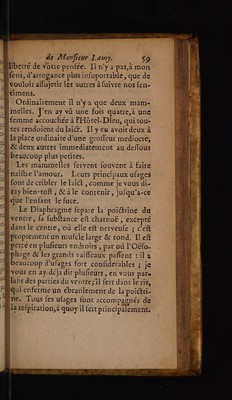 de Monsieur Lamy. 59
liberté de vôtre pensée. Il n'y a pas, à mon
sens, d'arrogance plus insuportable, que de
vouloir assujetir les autres à suivre nos sen-
timens.
Ordinairement il n'y a que deux mam-
melles. J'en ay vû une fois quatre, à une
femme accouchée à l'Hôtel-Dieu, qui tou-
tes rendoient du laict. Il y en avoit deux à
la place ordinaire d'une grosseur mediocre,
& deux autres immediatement au dessous
beaucoup plus petites.
Les mammelles servent souvent à faire
naître l'amour. Leurs principaux usages
sont de cribler le laict, comme je vous di-
ray bien-tost, & à le contenir, jusqu'à-ce
que l'enfant le suce.
Le Diaphragme separe la poictrine du
ventre, sa substance est charnuë, excepté
dans le centre, où elle est nerveuse ; c'est
proprement un muscle large & rond. Il est
percé en plusieurs endroits, par où l'Oëso-
phage & les grands vaisseaux passent : il a
beaucoup d'usages fort considerables ; je
vous en ay déja dit plusieurs, en vous par-
lant des parties du ventre; il sert dans le ris,
qui enferme un ébranlement de la poictri-
ne. Tous ses usages sont accompagnés de
la respiration, à quoy il sert principalement.